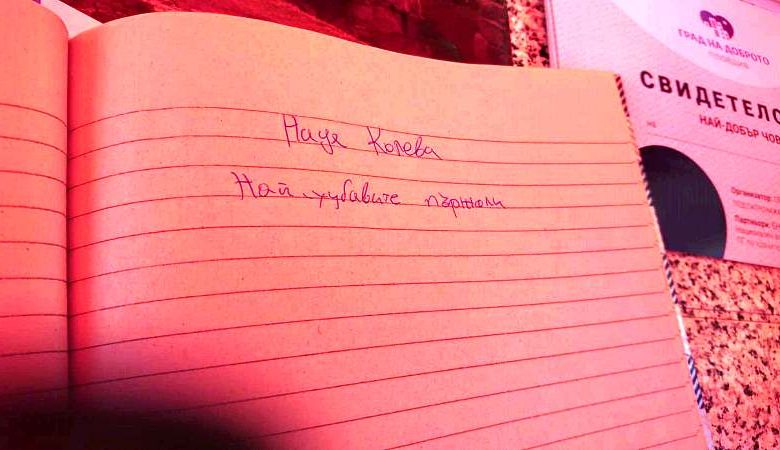 Надя Колева
Най-хубавите пържоли
ГРАД НА ДОБРОТО
ПЛОВДИВ
СВИДЕТЕЛС
НАЙ-ДОБЪР ЧОВ
на
Организатор
Партньори